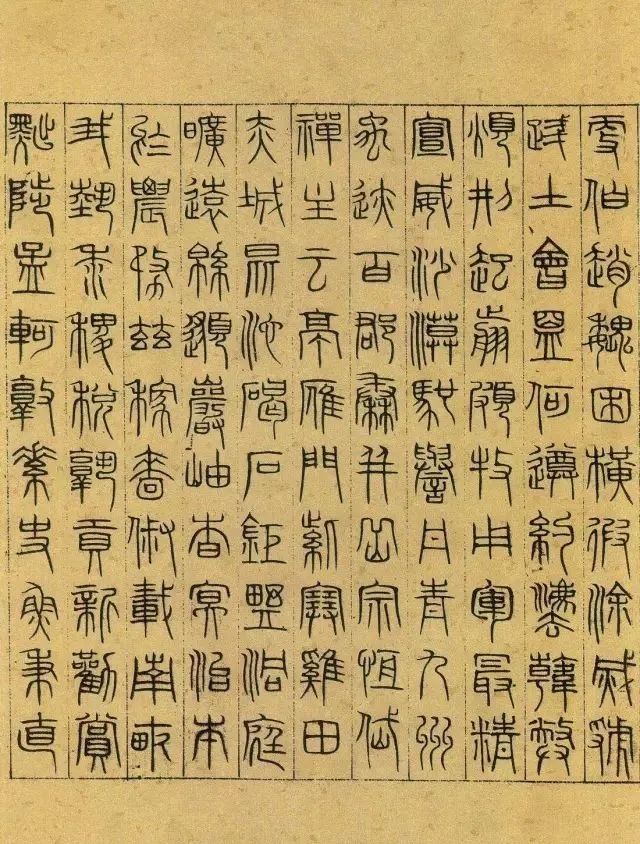 更伯趙魏困橫假涂滅虢
踐土會盟何遵約灋韓弊
煩刑起翦頗牧用軍最精
宣威沙漠馳譽丹青九州
禹迹百郡秦并岳宗恒岱
禪主云亭雁門紫塞雞田
赤城昆池碣石鉅野洞庭
曠遠綿邈巖岫杳冥治本
於農務茲稼穡俶載南畝
我藝黍稷稅熟貢新勸賞
黜陟孟軻敦素史魚秉直